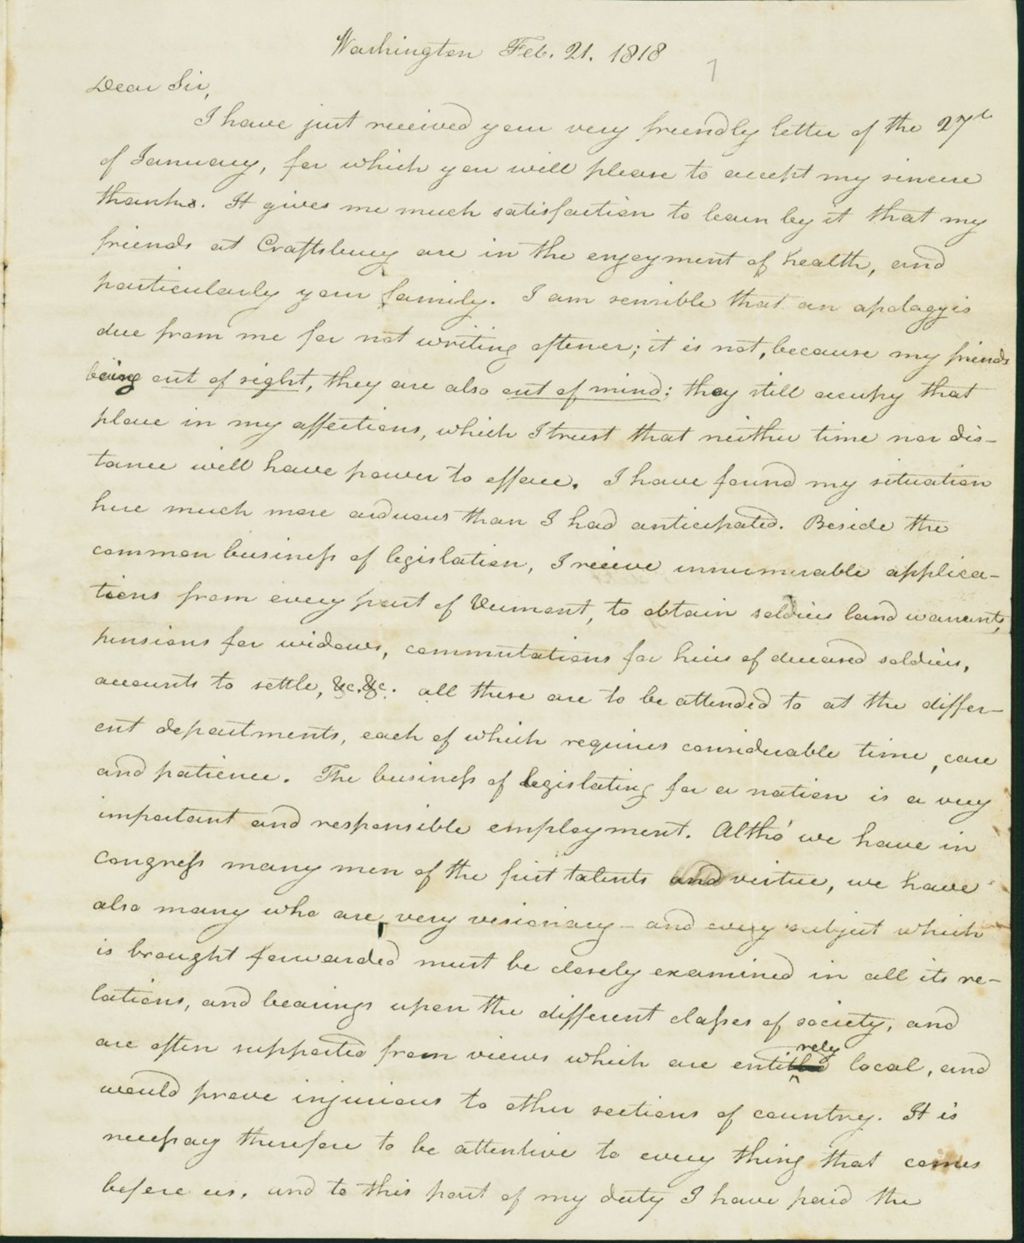 Washington Feb. 21. 1818
1
Dear Sir,
I have just received your very friendly letter of the 27th
of January, for which you will please to accept my sincere
thanks. It gives me much satisfaction to learn by it that my
friends at Craftsbury are in the enjoyment of health, and
particularly your family. I am sensible that an apology is
due from me for not writing oftener; it is not, because my friends
being out of sight, they are also out of mind; they still occupy that
place in my affections, which I trust that neither time nor dis-
tance will have power to efface. I have found my situation
here much more arduous than I had anticipated. Beside the
common business of legislation, I receive innumerable applica-
tions from every part of Vermont, to obtain soldiers land warrants,
pensions for widows, commutations for heirs of deceased soldiers,
accounts to settle, &c. &c. all these are to be attended to at the differ-
ent departments, each of which requires considerable time, care
and patience. The business of legislating for a nation is a very
important and responsible employment. Altho' we have in
Congress many men of the first talents and virtue, we have
also many who are very visionary - and every subject which
is brought forwarded must be closely examined in all its re-
lations, and bearings upon the different classes of society, and
are often supported from views which are entirely local, and
would prove injurious to other sections of country. It is
necessary therefore to be attentive to every thing that comes
before us. and to this part of my duty I have paid the